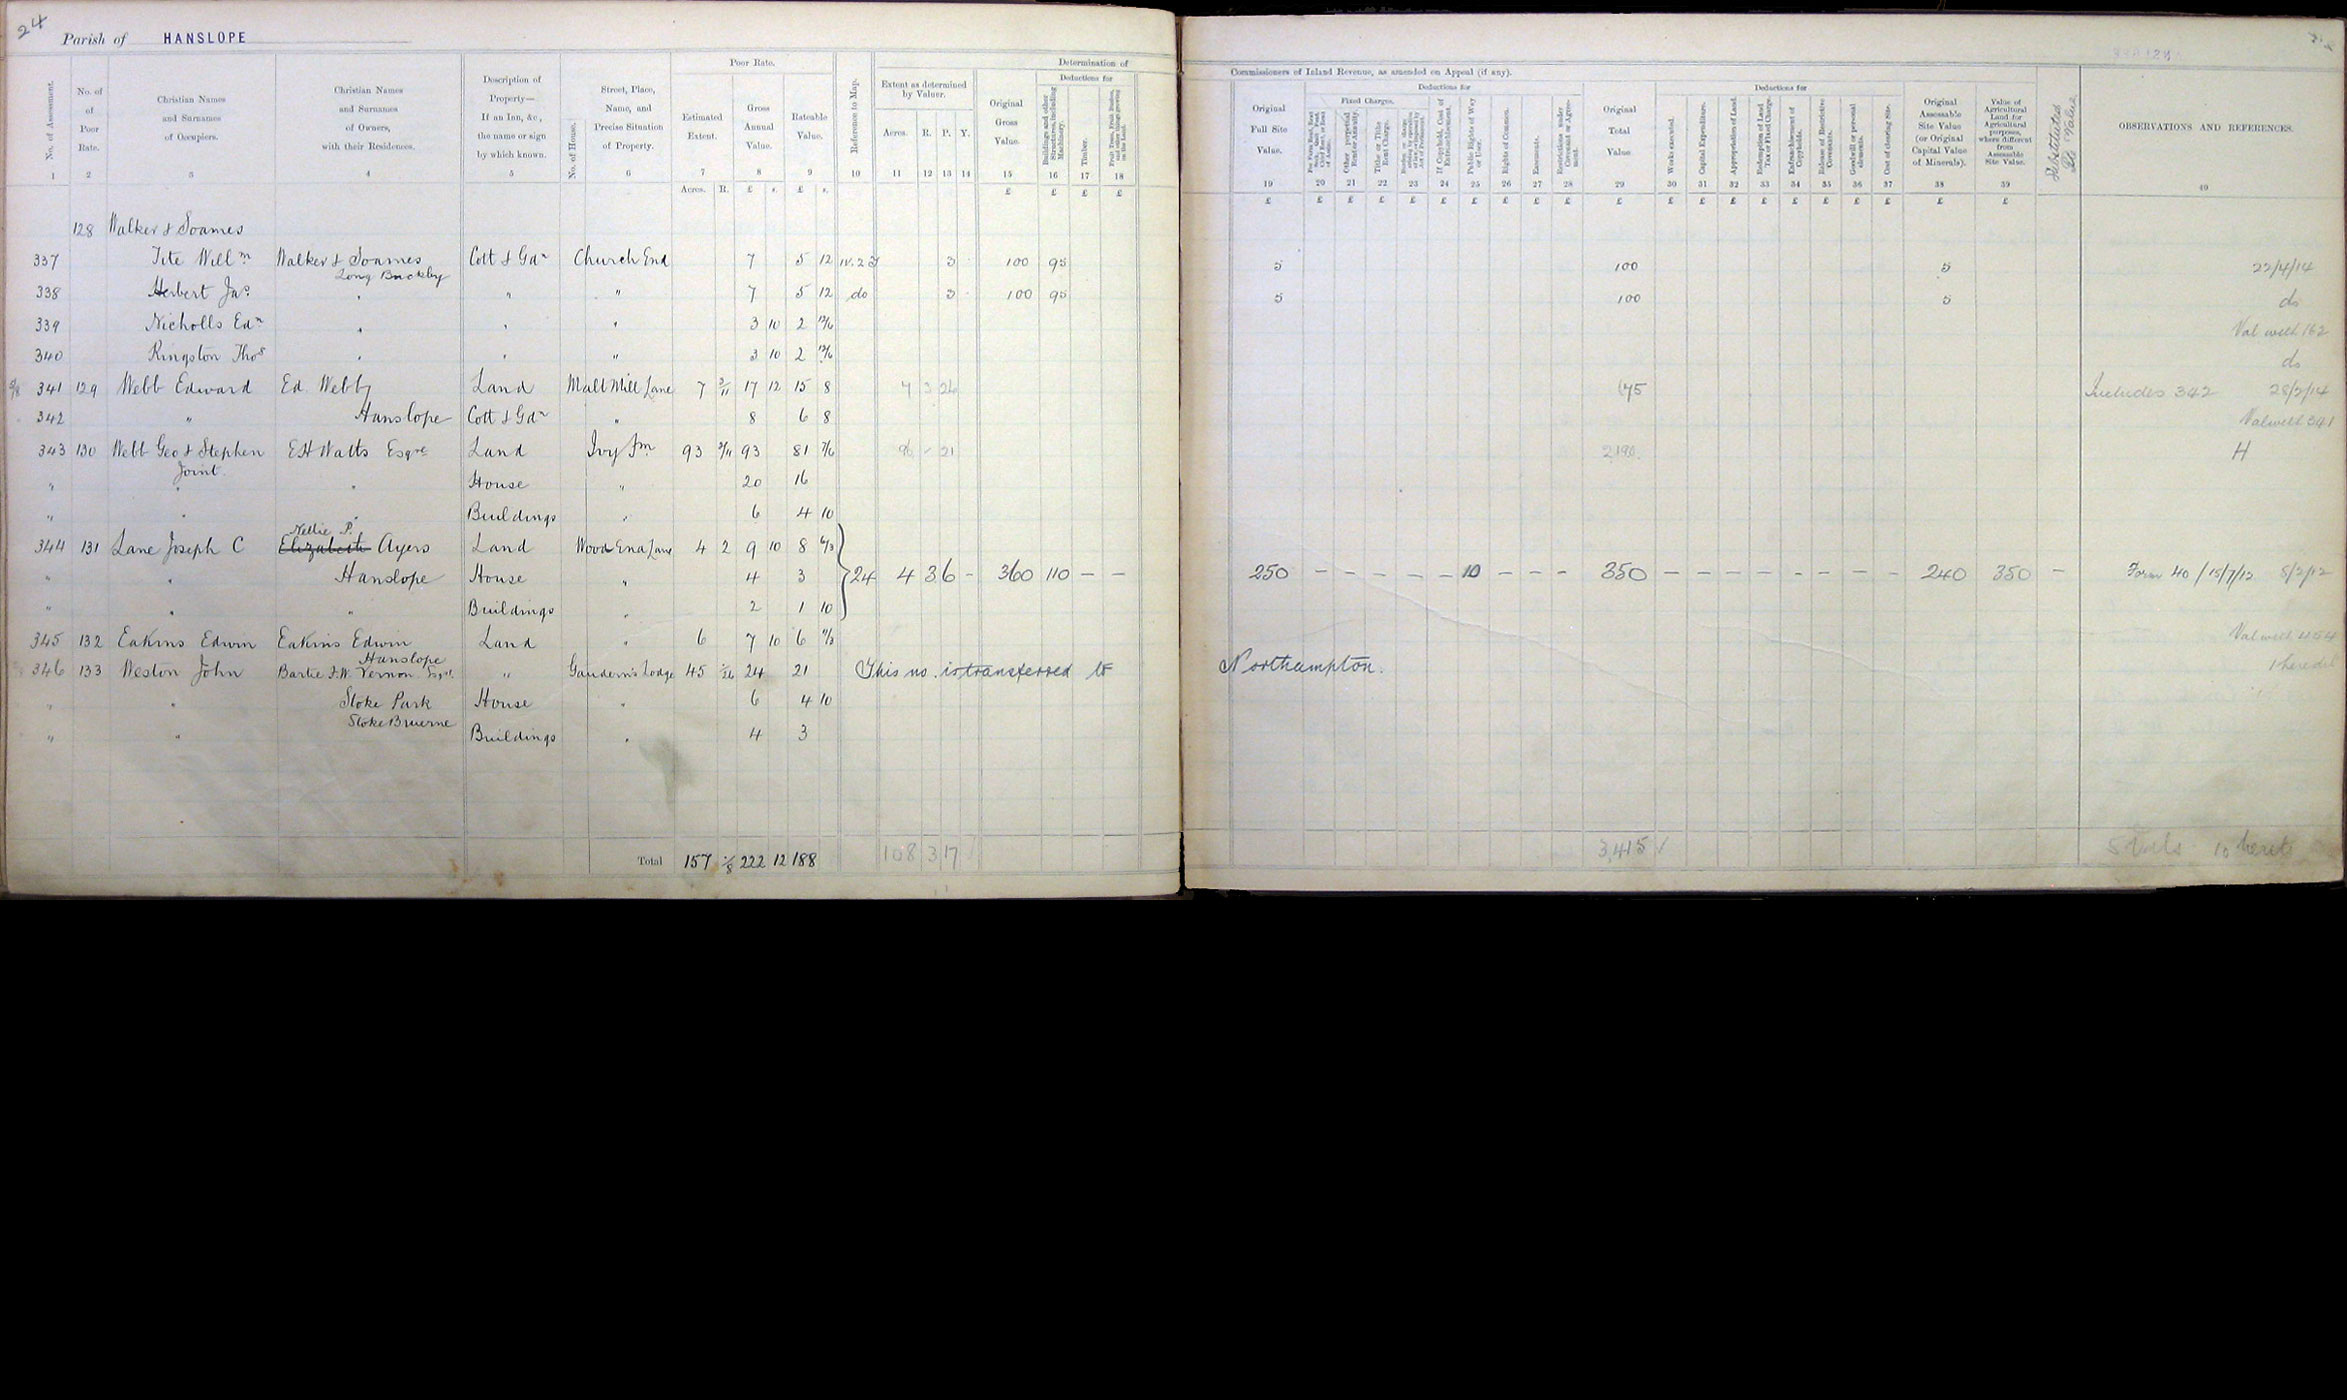 24
Parish of HANSLOPE
Poor Rate.
Determination of
No. of Assessment.
No. of Poor Rate.
Christian Names and Surnames of Occupiers.
Christian Names and Surnames of Owners, with their Residences.
Description of Property— If an Inn, &c., the name or sign by which known.
No. of House.
Street, Place, Name, and Precise Situation of Property.
Estimated Extent.
Gross Annual Value.
Rateable Value.
Reference to Map.
Extent as determined by Valuer.
Acres. R. P. Y.
Original Gross Value.
Deductions for
Buildings and other Structures, including Machinery.
Timber.
Fruit Trees, Fruit Bushes, and other things growing on the Land.
1 2 3 4 5 6 7 8 9 10 11 12 13 14 15 16 17 18
Acres. R. £ s. £ s. £ £ £ £
Commissioners of Inland Revenue, as amended on Appeal (if any).
Deductions for
Fixed Charges.
Deductions for
Original Full Site Value.
Other perpetual Rent or Annuity.
Tithe or Tithe Rent Charge.
If Copyhold, Cost of Enfranchisement.
Public Rights of Way or User.
Rights of Common.
Easements.
Restrictions under Covenant or Agreement.
Original Total Value
Works executed.
Capital Expenditure.
Appropriation of Land.
Redemption of Land Tax or Fixed Charge.
Enfranchisement of Copyholds.
Release of Restrictive Covenants.
Goodwill or personal elements.
Cost of clearing Site.
Original Assessable Site Value (or Original Capital Value of Minerals).
Value of Agricultural Land for Agricultural purposes, where different from Assessable Site Value.
Substituted Site Value
OBSERVATIONS AND REFERENCES.
19 20 21 22 23 24 25 26 27 28 29 30 31 32 33 34 35 36 37 38 39 40
£ £ £ £ £ £ £ £ £ £ £ £ £ £ £ £ £ £ £ £ £
128 Walker & Soames
337 Tite Willm Walker & Soames Cott & Gdn Church End 7 5 12 3 100 95 5 100 5 22/4/14
Long Buckby
338 Herbert Jas. " " " 7 5 12 do 3 100 95 5 100 5 do
339 Nicholls Edn " " " 3 10 2 Val with 162
340 Kingston Thos " " " 3 10 2 do
341 129 Webb Edward Ed Webb Land Malt Mill Lane 7 3/11 17 12 15 8 7 3 26 Includes 342 28/2/14
342 " Hanslope Cott & Gdn " 8 6 8 Val with 341
343 130 Webb Geo & Stephen EH Watts Esqre Land Ivy Fm 93 93 81 7/6 96 21 H
Joint.
" " " House " 20 16
" " " Buildings " 6 4 10
Nellie P.
344 131 Lane Joseph C Elizabeth Ayers Land Wood End Lane 4 2 9 10 8 6/3
" " Hanslope House " 4 3 24 4 36 - 360 110 - - 250 - - - - - 10 - - - 350 - - - - - - - - 240 350 - Form 40 / 15/7/12 5/2/12
" " " Buildings " 2 1 10
345 132 Eakins Edwin Eakins Edwin Land " 6 7 10 6 11/3 Val with 454
Hanslope
346 133 Weston John Bartie F.W. Vernon Esqre " Gaudern's Lodge 45 24 21 This no. is transferred to Northampton. 1 heredit
" " Stoke Park House " 6 4 10
Stoke Bruerne
" " Buildings " 4 3
Total 157 222 12 188 108 3 17 3,415 5 Vals 10 heredts